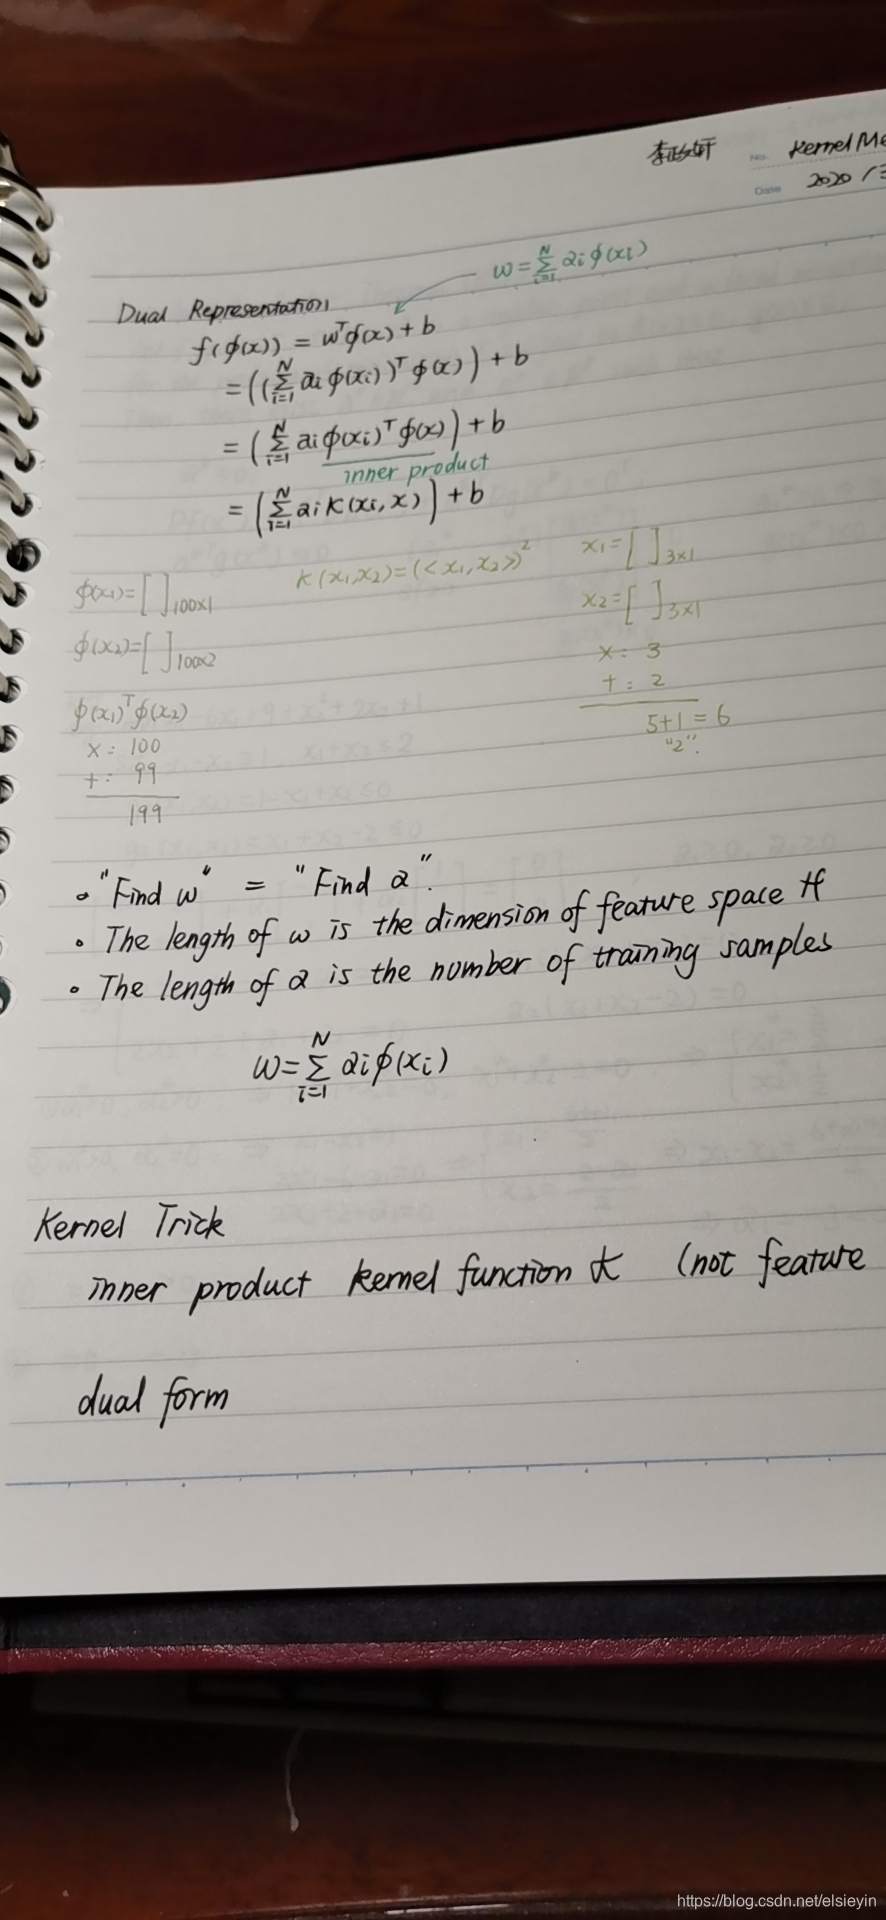 李政轩 No. Kernel Me
Date 2020 / 3
w = Σ_{i=1}^{N} αi ϕ(xi)
Dual Representation
f(ϕ(x)) = wᵀϕ(x) + b
= ((Σ_{i=1}^{N} αi ϕ(xi))ᵀ ϕ(x)) + b
= (Σ_{i=1}^{N} αi ϕ(xi)ᵀ ϕ(x)) + b
inner product
= (Σ_{i=1}^{N} αi K(xi, x)) + b
K(x₁,x₂) = (<x₁,x₂>)²
ϕ(x₁) = [ ]₁₀₀ₓ₁
ϕ(x₂) = [ ]₁₀₀ₓ₂
ϕ(x₁)ᵀϕ(x₂)
x : 100
+ : 99
199
x₁ = [ ]₃ₓ₁
x₂ = [ ]₃ₓ₁
x : 3
+ : 2
5+1 = 6
"2".
• "Find w" = "Find α".
• The length of w is the dimension of feature space H
• The length of α is the number of training samples
w = Σ_{i=1}^{N} αi ϕ(xi)
Kernel Trick
inner product kernel function K (not feature
dual form
https://blog.csdn.net/elsieyin